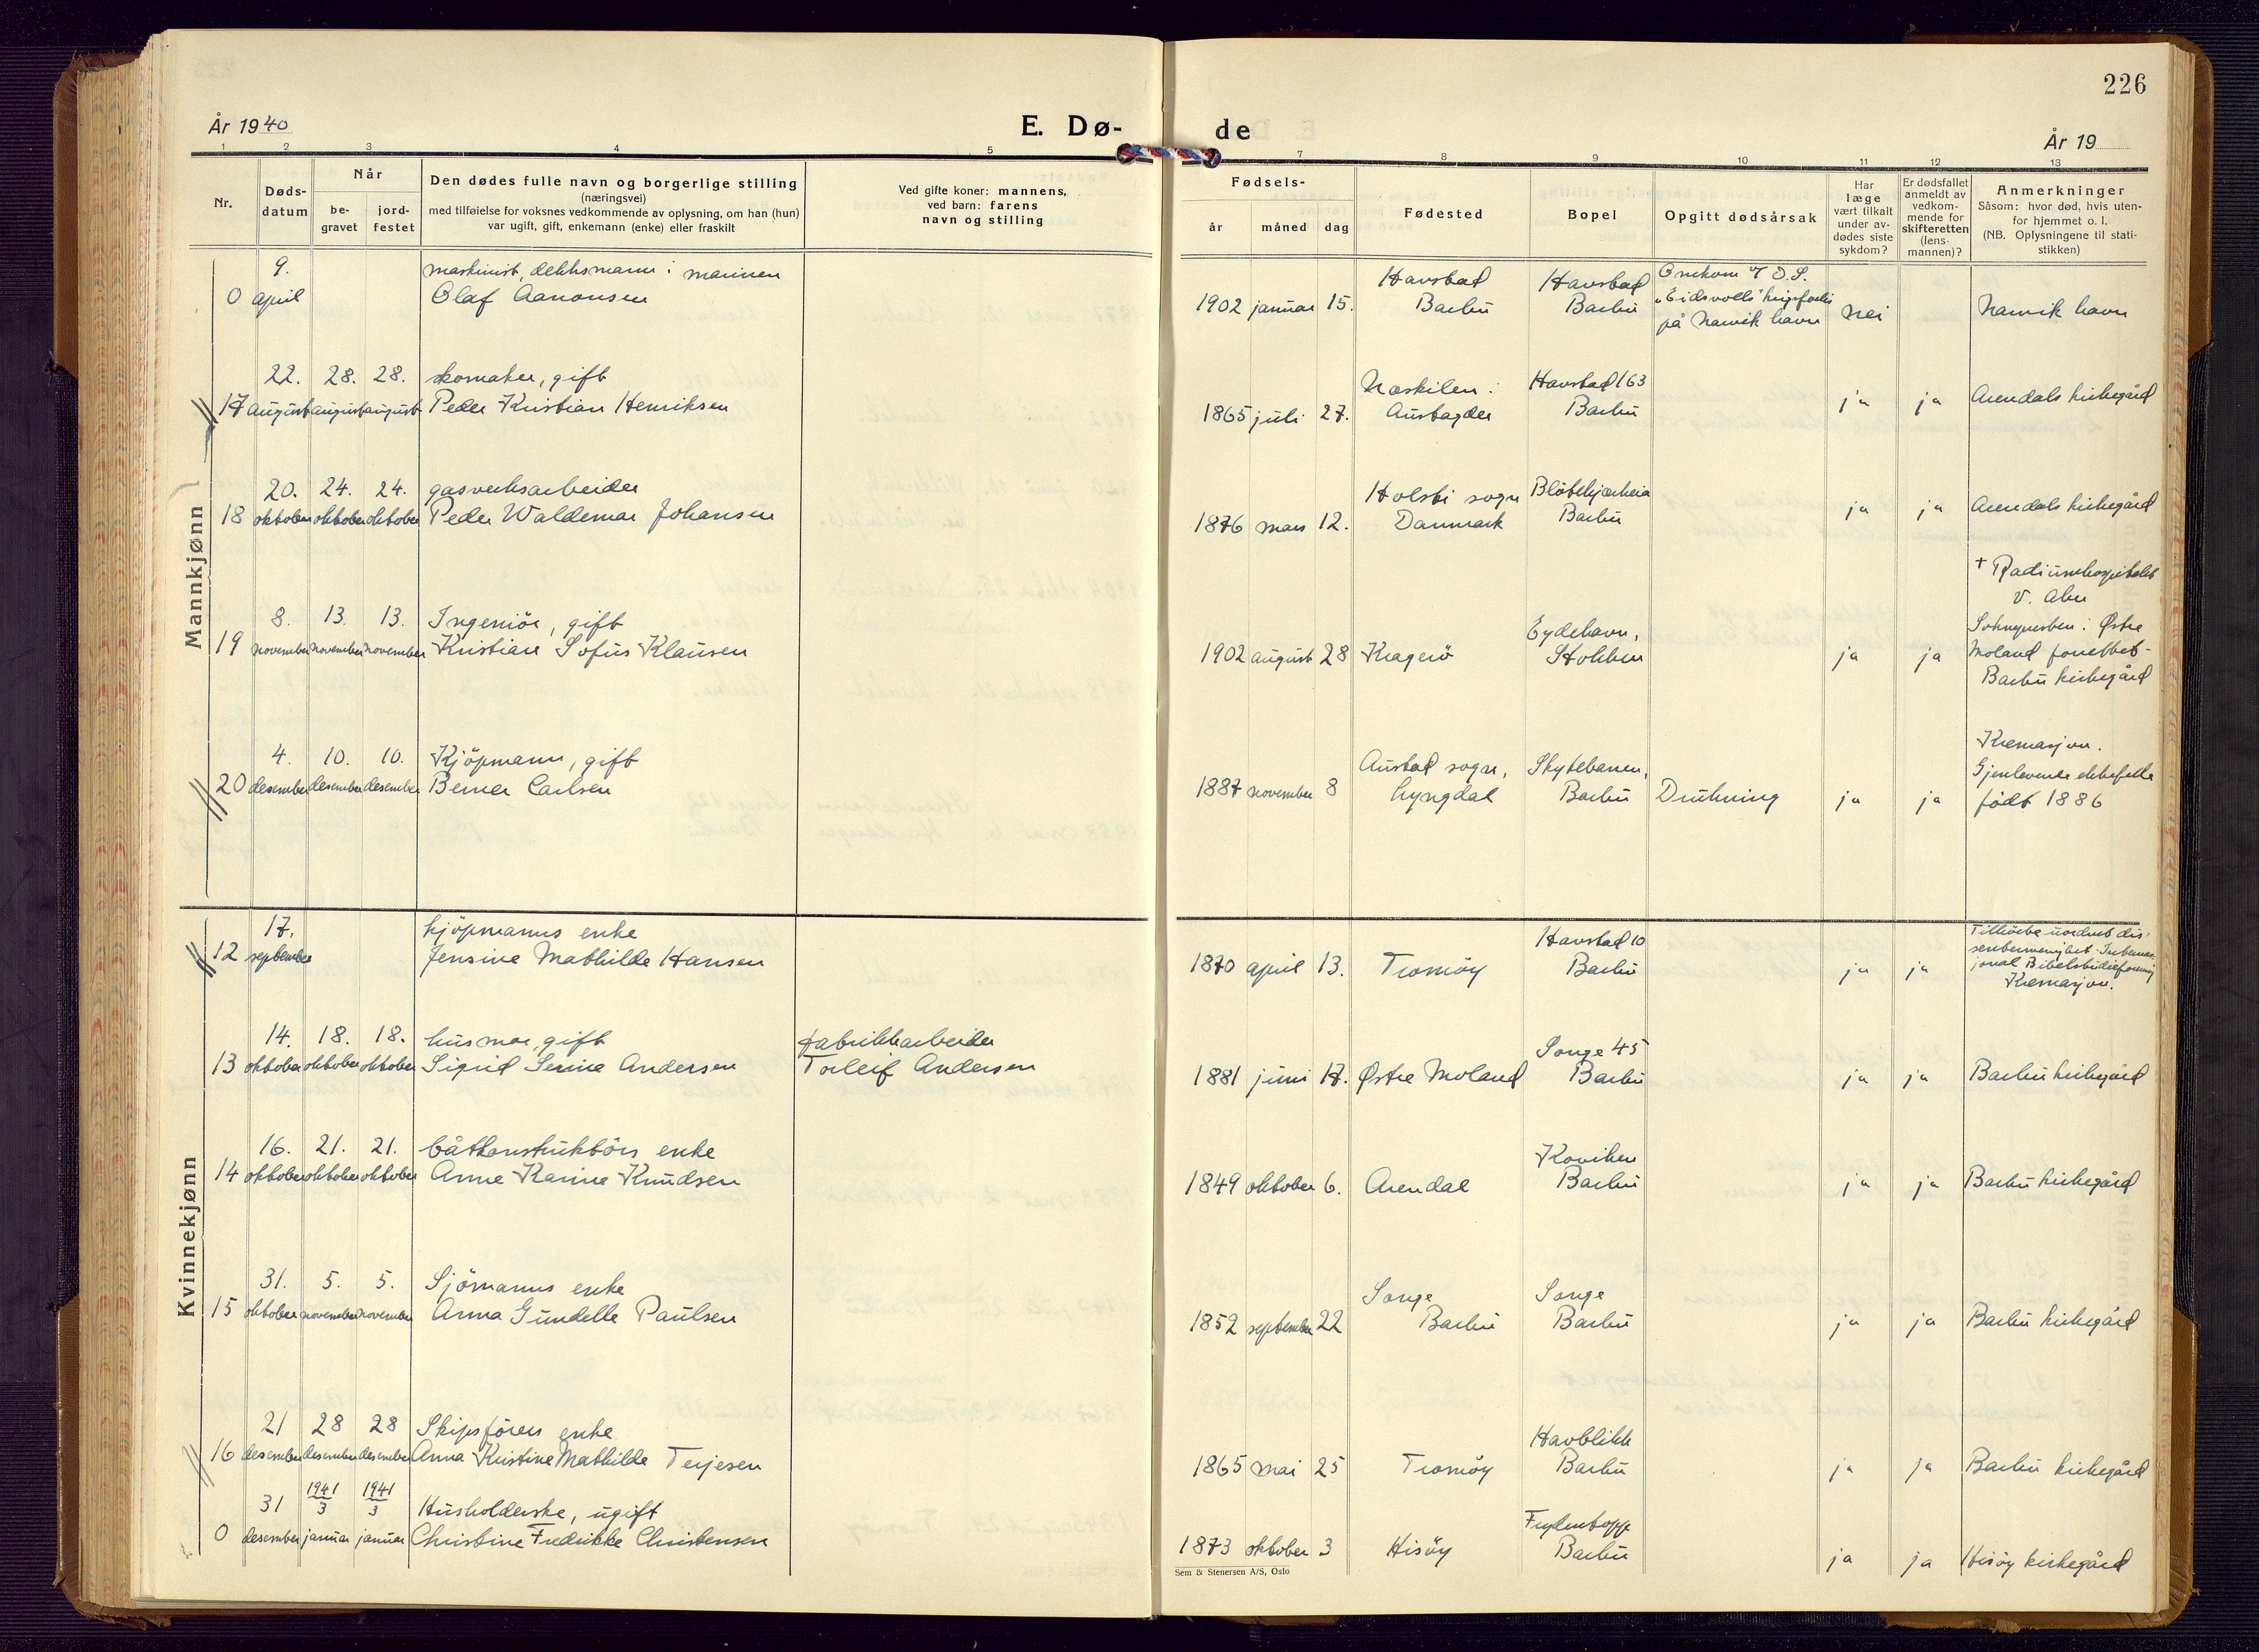 226
År 1940
E. Dø-
de
År 19
1 2 3 4 5
7 8 9 10 11 12 13
Nr.
Døds-
datum
Når
be-
gravet
jord-
festet
Den dødes fulle navn og borgerlige stilling
(næringsvei)
med tilføielse for voksnes vedkommende av oplysning, om han (hun)
var ugift, gift, enkemann (enke) eller fraskilt
Ved gifte koner: mannens,
ved barn: farens
navn og stilling
Fødsels-
år måned dag
Fødested
Bopel
Opgitt dødsårsak
Har
læge
vært tilkalt
under av-
dødes siste
sykdom?
Er dødsfallet
anmeldt av
vedkom-
mende for
skifteretten
(lens-
mannen)?
Anmerkninger
Såsom: hvor død, hvis uten-
for hjemmet o. l.
(NB. Oplysningene til stati-
stikken)
Mannkjønn
9. maskinist, dekksmann i marinen Havstad Havstad Omkom
0 april Olaf Aanonsen 1902 januar 15. Barbu Barbu "Eidsvolls" nei Narvik havn
på Narvik havn
22. 28. 28. skomaker, gift Naskilen i Havstad 163
17 august august august Peder Kristian Henriksen 1865 juli 27. Austagder Barbu ja ja Arendals kirkegård
20. 24. 24. gasverksarbeider Holsti sogn Blötekjærheia
18 oktober oktober oktober Peder Waldemar Johansen 1876 mars 12. Danmark Barbu ja ja Arendals kirkegård
+ Radiumhospitalet
V. Aker
8. 13. 13. Ingeniör, gift Eydehavn, Soknepresten i Østre
19 november november november Kristian Sofus Klausen 1902 august 28 Kragerö Stokken ja ja Moland forrettet-
Barbu kirkegård
4. 10. 10. Kjöpmann, gift Austad sogn, Skytebanen, Kremasjon.
Gjenlevende ektefelle
20 desember desember desember Berner Carlsen 1887 november 8 Lyngdal Barbu Drukning ja ja født 1886
Kvinnekjønn
17. kjöpmanns enke Havstad 10 Tilhörte uordnet dis-
sentermenighet: Internas-
12 september Jensine Mathilde Hansen 1870 april 13. Tromöy Barbu ja ja jonal Bibelstudieforening
Kremasjon.
14. 18. 18. husmor, gift fabrikkarbeider Songe 45
13 oktober oktober oktober Sigrid Serine Andersen Torleif Andersen 1881 juni 17. Østre Moland Barbu ja ja Barbu kirkegård
16. 21. 21. båtkonstruktörs enke Koviken
14 oktober oktober oktober Anne Karine Knudsen 1849 oktober 6. Arendal Barbu ja ja Barbu kirkegård
31. 5. 5. Sjömanns enke Songe Songe
15 oktober november november Anna Gundelle Paulsen 1852 september 22 Barbu Barbu ja ja Barbu kirkegård
21 28 28 Skipsförers enke Havblikk
16 desember desember desember Anna Kristine Mathilde Terjesen 1865 mai 25 Tromöy Barbu ja ja Barbu kirkegård
1941 1941
31 3 3 Husholderske, ugift Frydentopp
0 desember januar januar Christine Fredrikke Christensen 1873 oktober 3 Hisöy Barbu ja ja Hisöy kirkegård
Sem & Stenersen A/S, Oslo